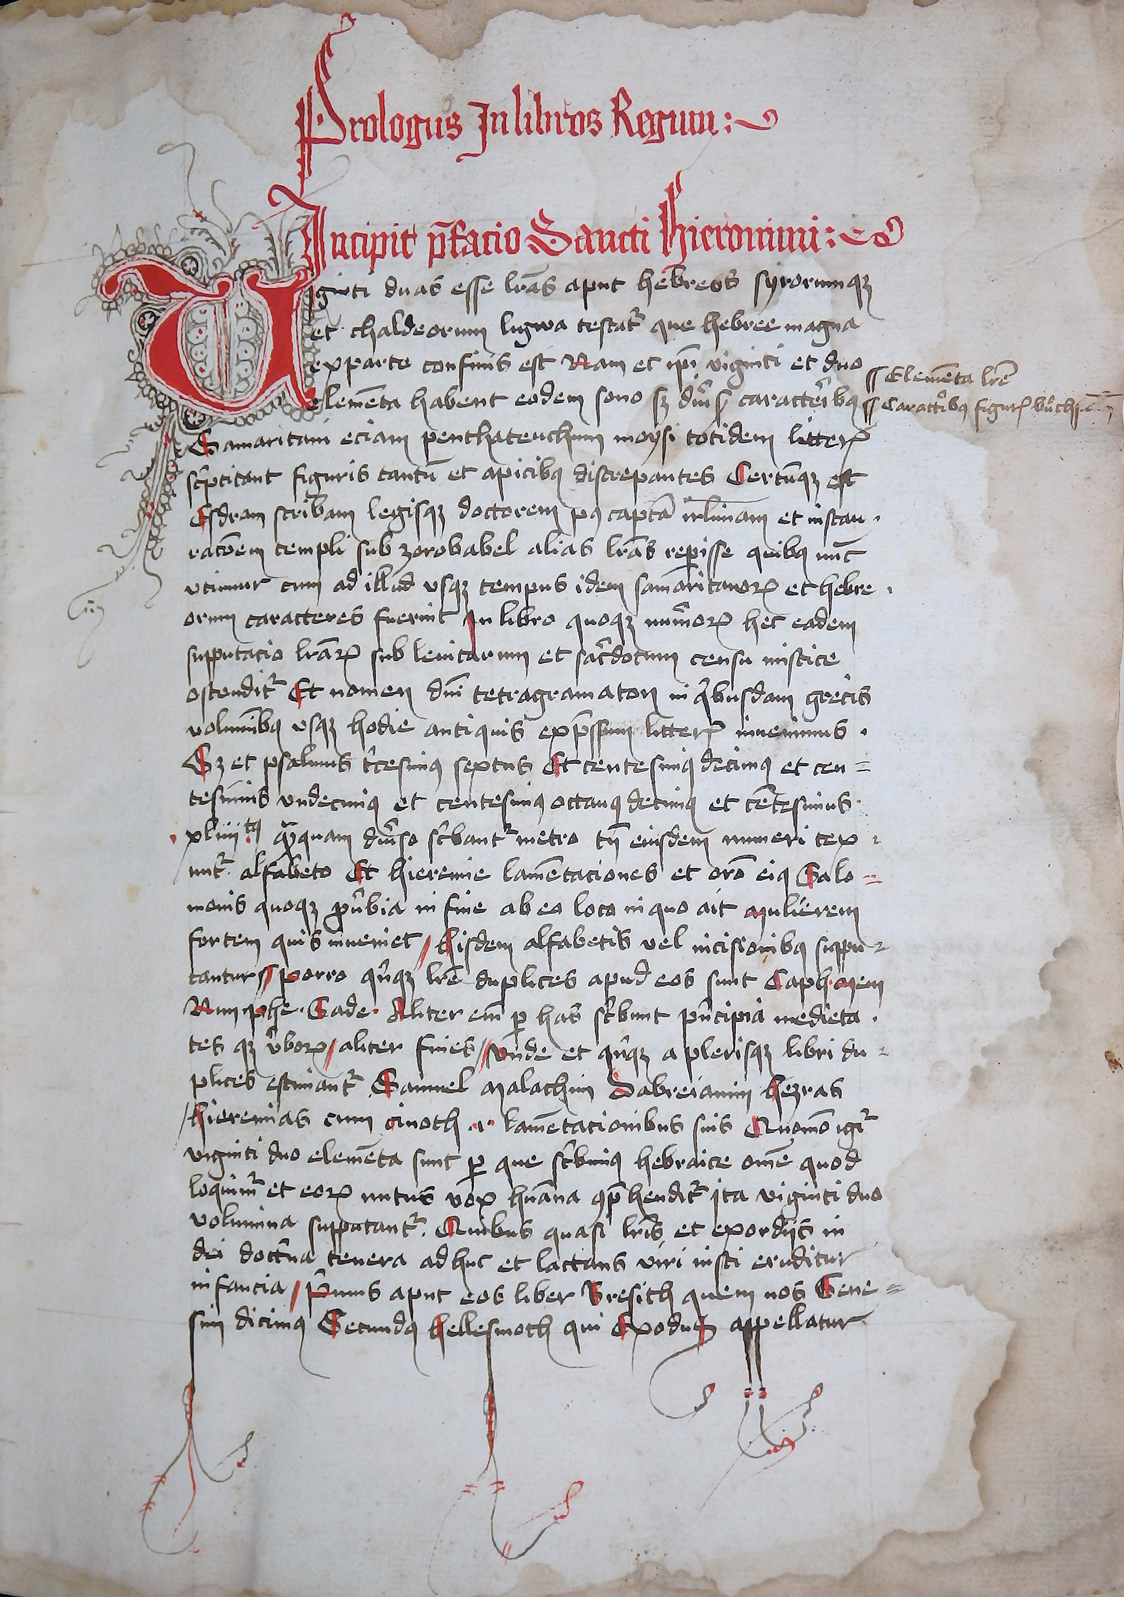 Prologus In libros Regum :
Incipit p̄facio Sancti Hieronimi :
Viginti duas esse lr̄as aput hebreos syrorumqꝫ
et chaldeorum lingwa testat᷑ que hebree magna
exparte confinis est Nam et ip̄i viginti et duo
elemēta habent eodem sono sꝫ diu͛s caracter͛ibꝯ
// Elemēta lr̄e
// Caract͛ibꝯ figur᷑
Samaritani eciam penthateuchum moysi totidem litterꝝ
sc͛ptitant figuris tantū et apicibꝯ discrepantes Certūqꝫ est
Esdram scribam legisqꝫ doctorem pꝯ captā ir͛limam et instau
racōem templi sub zorobabel alias lr̄as rep̱isse quibꝯ nūc
vtimur cum ad illud vsqꝫ tempus idem samaritanorꝝ et hebre
orum caracteres fuerint In libro quoqꝫ num͛orꝝ hec eadem
supputacio lr̄arꝝ sub leuitarum et sac͛dotum censu mistice
ostendit᷑ Et nomen dn̄i tetragramaton in q͛busdam grecis
voluminibꝯ vsqꝫ hodie antiquis exp̄ssum litterꝝ inuenimus
Sꝫ et psalmus t͛cesimꝯ septus Et centesimꝯ decimꝯ et cen=
tesimus vndecimꝯ et centesimꝯ octauꝯ decimꝯ et cētesimus
xliiijtꝯ q̄ꝫquam diu͛so sc͛bant᷑ metro tn̄ eiusdem numeri tex
unt᷑ alfabeto Et hieremie lamētaciones et orō eiꝯ Salo=
monis quoqꝫ ꝓu͛bia in fine ab eo loco in quo ait mulierem
fortem quis inueniet / Eisdem alfabetis vel incisionibꝯ suppu=
tantur // Porro q͛nqꝫ lr̄e duplices apud eos sunt Caph Mem
Nun phe Sade Aliter em̄ ꝑ has sc͛bunt p͛ncipia medieta
tes qꝫ v͛borꝝ / aliter fines // Vnde et q͛nqꝫ a plerisqꝫ libri du=
plices estimant᷑ Samuel Malachim Dabreiamin Hezras
Hieremias cum cinoth .i. lamētacionibus suis Quomō igit᷑
viginti duo elemēta sunt ꝑ que sc͛bimꝯ hebraice om̄e quod
loquim͛ et eorꝝ nutus vox hūana ꝯp̄hendit᷑ Ita viginti duo
volumina supputant᷑ Quibus quasi lr̄is et exordijs in
dei doct͛na tenera adhuc et lactans viri iusti eruditur
infancia / p͛mus aput eos liber Bresith quem nos Gene=
sim dicimꝯ Secundꝯ hellesmoth qui Exodus appellatur